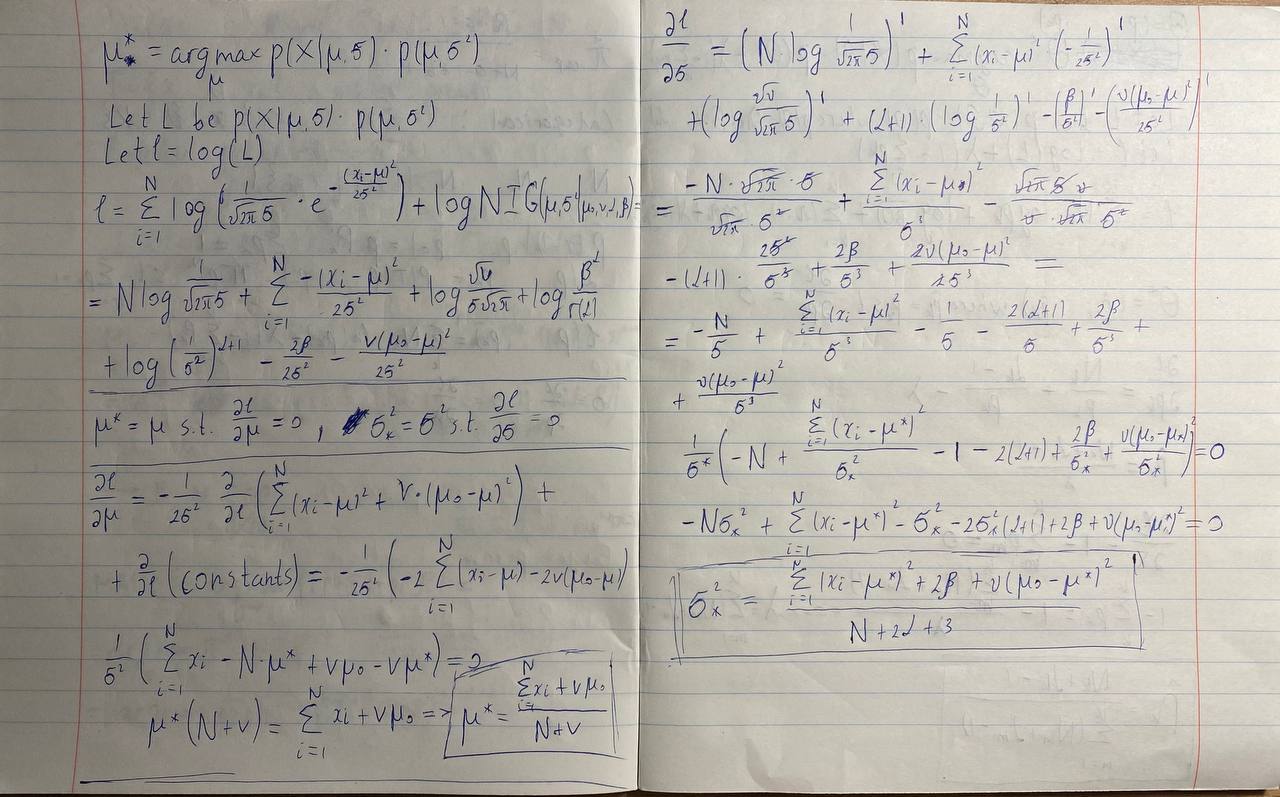 μ* = argmax_μ p(X|μ,σ) · p(μ,σ²)
Let L be p(X|μ,σ) · p(μ,σ²)
Let l = log(L)
l = Σ_{i=1}^{N} log(1/(√2π σ) · e^{-(xi-μ)²/2σ²}) + log NIG(μ,σ²|μ₀,ν,α,β) =
= N log 1/(√2π σ) + Σ_{i=1}^{N} -(xi-μ)²/2σ² + log √ν/(σ√2π) + log β^α/Γ(α)
+ log(1/σ²)^{α+1} - 2β/2σ² - ν(μ₀-μ)²/2σ²
μ* = μ s.t. ∂l/∂μ = 0 , σ*² = σ² s.t. ∂l/∂σ = 0
∂l/∂μ = -1/2σ² ∂/∂l (Σ_{i=1}^{N} (xi-μ)² + ν·(μ₀-μ)²) +
+ ∂/∂l (constants) = -1/2σ² (-2 Σ_{i=1}^{N} (xi-μ) - 2ν(μ₀-μ))
1/σ² (Σ_{i=1}^{N} xi - N·μ* + νμ₀ - νμ*) = 0
μ*(N+ν) = Σ_{i=1}^{N} xi + νμ₀ => μ* = (Σ_{i=1}^{N} xi + νμ₀)/(N+ν)
∂l/∂σ = (N log 1/(√2π σ))' + Σ_{i=1}^{N} (xi-μ)² (-1/2σ²)'
+ (log √ν/(√2π σ))' + (α+1)·(log 1/σ²)' - (β/σ²)' - (ν(μ₀-μ)²/2σ²)'
= -N·√2π·σ/(√2π σ²) + Σ_{i=1}^{N} (xi-μ)²/σ³ - √2π σ ν/(ν·√2π σ²)
-(α+1) · 2σ²/σ³ + 2β/σ³ + 2ν(μ₀-μ)²/2σ³ =
= -N/σ + Σ_{i=1}^{N} (xi-μ)²/σ³ - 1/σ - 2(α+1)/σ + 2β/σ³ +
+ ν(μ₀-μ)²/σ³
1/σ* (-N + Σ_{i=1}^{N} (xi-μ*)²/σ*² - 1 - 2(α+1) + 2β/σ*² + ν(μ₀-μ*)²/σ*²) = 0
-Nσ*² + Σ_{i=1}^{N} (xi-μ*)² - σ*² - 2σ*²(α+1) + 2β + ν(μ₀-μ*)² = 0
σ*² = (Σ_{i=1}^{N} (xi-μ*)² + 2β + ν(μ₀-μ*)²)/(N+2α+3)